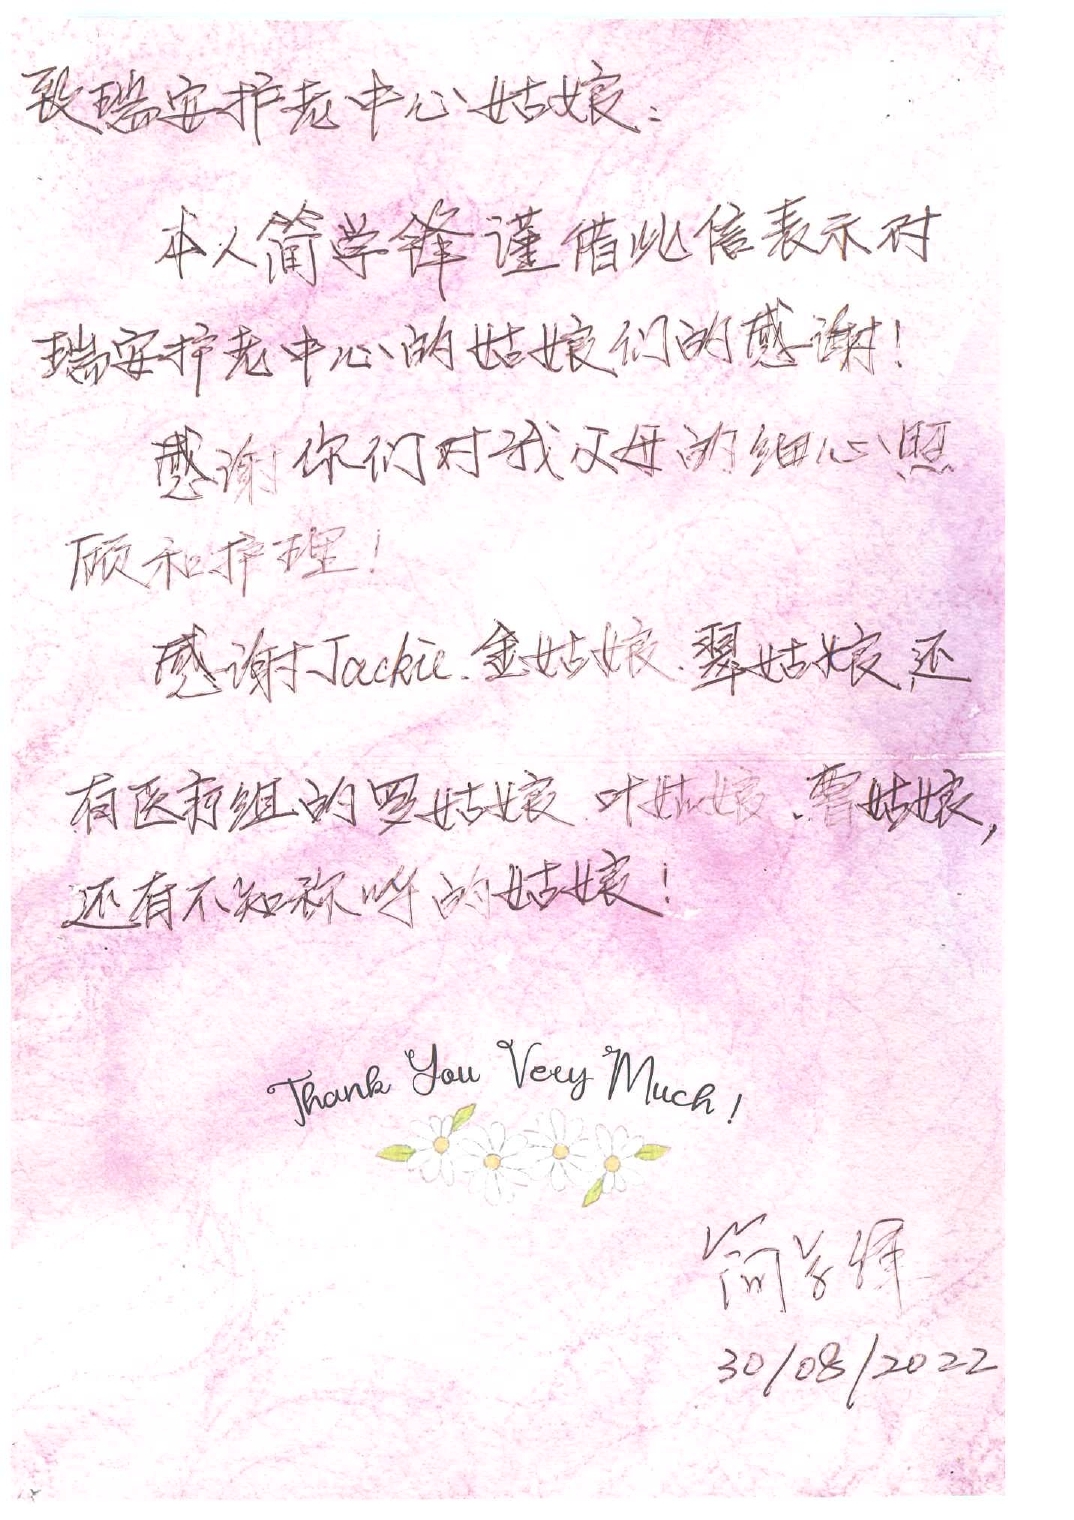 致瑞安护老中心姑娘：
本人简学锋谨借此信表示对
瑞安护老中心的姑娘们的感谢！
感谢你们对我父母的细心照
顾和护理！
感谢Jackie.金姑娘.翠姑娘,还
有医疗组的罗姑娘.叶姑娘.曹姑娘,
还有不知称呼的姑娘！
Thank You Very Much!
简学锋
30/08/2022